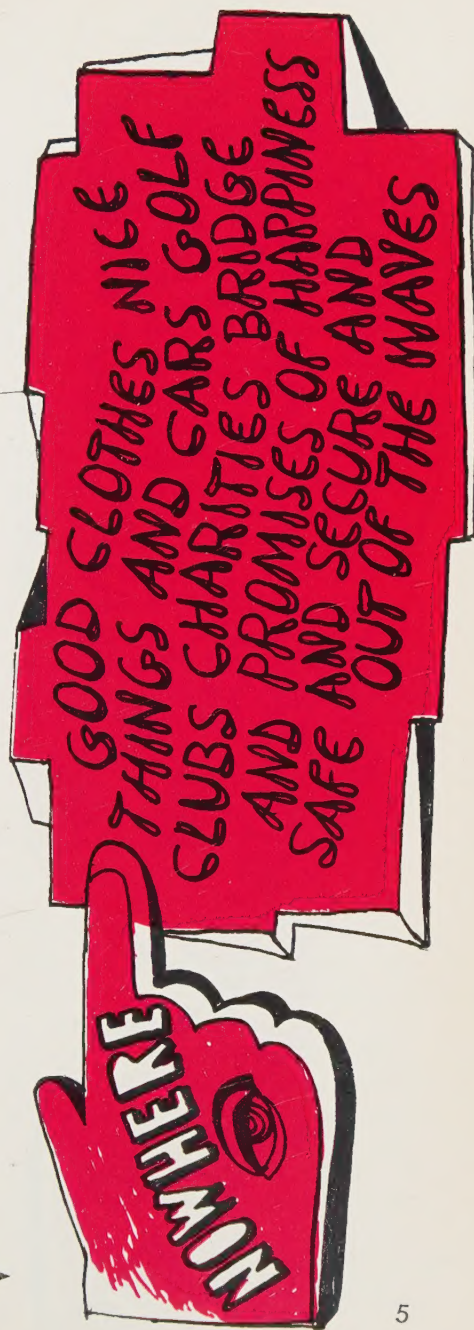 NOWHERE
GOOD CLOTHES NICE
THINGS AND CARS GOLF
CLUBS CHARITIES BRIDGE
AND PROMISES OF HAPPINESS
SAFE AND SECURE AND
OUT OF THE WAVES
5